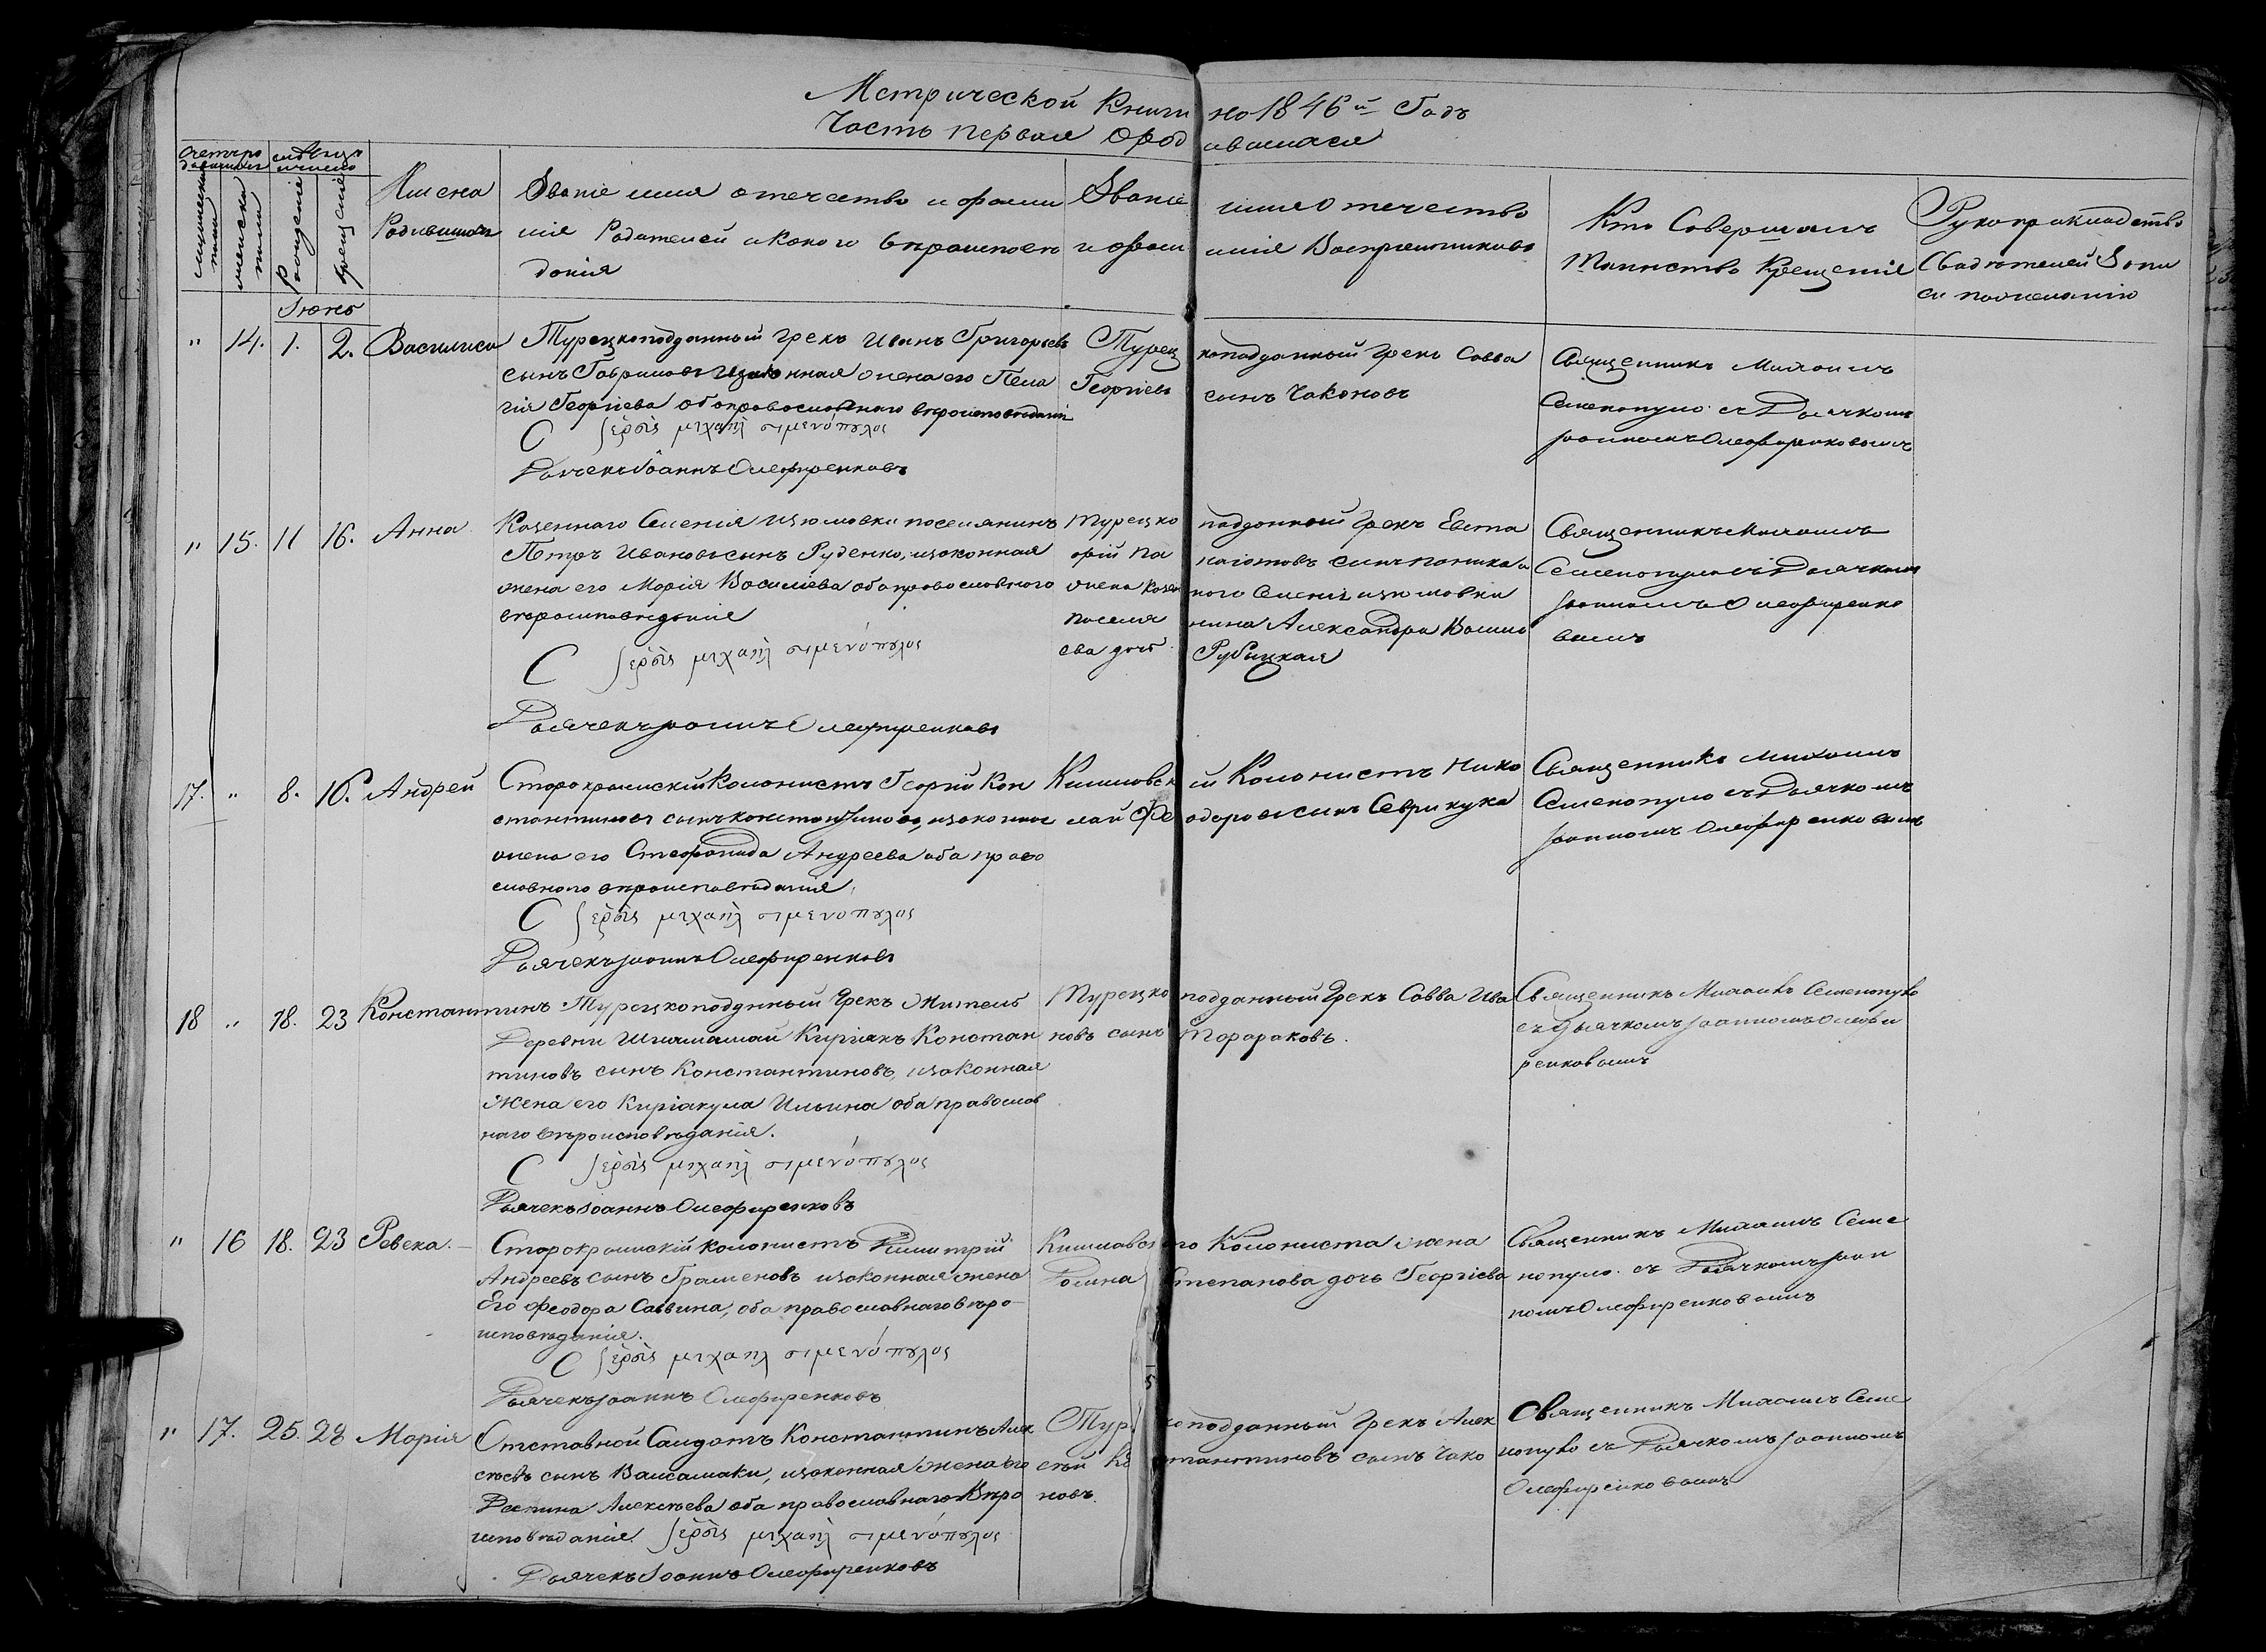 Метрической Книги на 1846й Годъ
Часть первая О родившихся
Счетъ родившихся
Мѣсяцъ и число
мужеска пола
женска пола
Рожденіе
Крещеніе
Имена
Родившихъ
Званіе имя отечество и фами
лія Родителей и какого вѣроисповѣ
данія
Званіе имя Отечество
и фамилія Воспріемниковъ
Кто Совершалъ
Таинство Крещенія
Рукоприкладство
Свадѣтелей Запи
си по желанію
Іюнь
" 14. 1. 2. Василиса
Турецкоподданный грекъ Иванъ Григорьевъ
сынъ Гавриловъ изаконная жена его Пела
гія Георгіева оба православнаго вѣроисповѣданія
С Ἰερεὺς μιχαὴλ σιμενόπουλος
Дьячекъ Іоаннъ Олефиренковъ
Турецкоподданный Грекъ Савва
Георгіевъ сынъ Чаконовъ
Священникъ Михаилъ
Семенопуло съ Дьячкомъ
Іоанномъ Олефиренковымъ
" 15. 11 16. Анна
Казеннаго Селенія Изюмовки поселянинъ
Петръ Ивановъ сынъ Руденко, изаконная
жена его Марія Василіева оба православнаго
вѣроисповѣданія
С Ἰερεὺς μιχαὴλ σιμενόπουλος
Дьячекъ Іоаннъ Олефиренковъ
Турецкоподданный Грекъ Евста
фій Панаіотовъ сынъ Паника и
жена казеннаго Селенія Изюмовки
поселянина Александра Васили
ева дочь Рубыцкая
Священникъ Михаилъ
Семенопуло съ Дьячкомъ
Іоанномъ Олефиренко
вымъ
17. " 8. 16. Андрей
Старокрымскій Колонистъ Георгій Кон
стантиновъ сынъ Константиновъ, изаконная
жена его Стефанида Андреева оба право
славнаго вѣроисповѣданія,
С Ἰερεὺς μιχαὴλ σιμενοπουλος
Дьячекъ Іоаннъ Олефиренковъ
Кишловскій Колонистъ Нико
лай Феодоровъ сынъ Саврикука
Священникъ Михаилъ
Семенопуло съ Дьячкомъ
Іоанномъ Олефиренковымъ
18 " 18. 23 Константинъ
Турецкоподднный Грекъ Житель
Деревни Киріакъ Констан
тиновъ сынъ Константиновъ, изаконная
Жена его Киріакула Ильина оба православ
наго вѣроисповѣданія.
С Ἰερεὺς μιχαὴλ σιμενόπουλος
Дьячекъ Іоаннъ Олефиренковъ
Турецкоподданный Грекъ Савва Ива
новъ сынъ Тофараковъ.
Священникъ Михаилъ Семенопуло
съ Дьячкомъ Іоанномъ Олефи
ренковымъ
" 16 18. 23 Ревека.
Старокрымскій колонистъ Димитрій
Андреевъ сынъ Граменовъ изаконная жена
Его Феодора Саввина, оба православнаго вѣро-
исповѣданія.
С Ἰερεὺς μιχαηλ σιμενόπουλος
Дьячекъ Іоаннъ Олефиренковъ
Кишлавскаго Колониста жена
Домна Степанова дочь Георгіева
Священникъ Михаилъ Семе
нопуло съ Дьячкомъ Іоан
номъ Олефиренковымъ
" 17. 25. 28 Марія
Отставной Салдатъ Константинъ Алек
сѣевъ сынъ Валсамаки, изаконная жена его
Деспина Алексѣева оба православнаго Вѣро
исповѣданія. Ἰερεὺς μιχαὴλ σιμενόπουλος
Дьячекъ Іоаннъ Олефиренковъ
Турецкоподданный Грекъ Алек
сѣй Константиновъ сынъ Чако
новъ.
Священникъ Михаилъ Семе
нопуло съ Дьячкомъ Іоанномъ
Олефиренковымъ